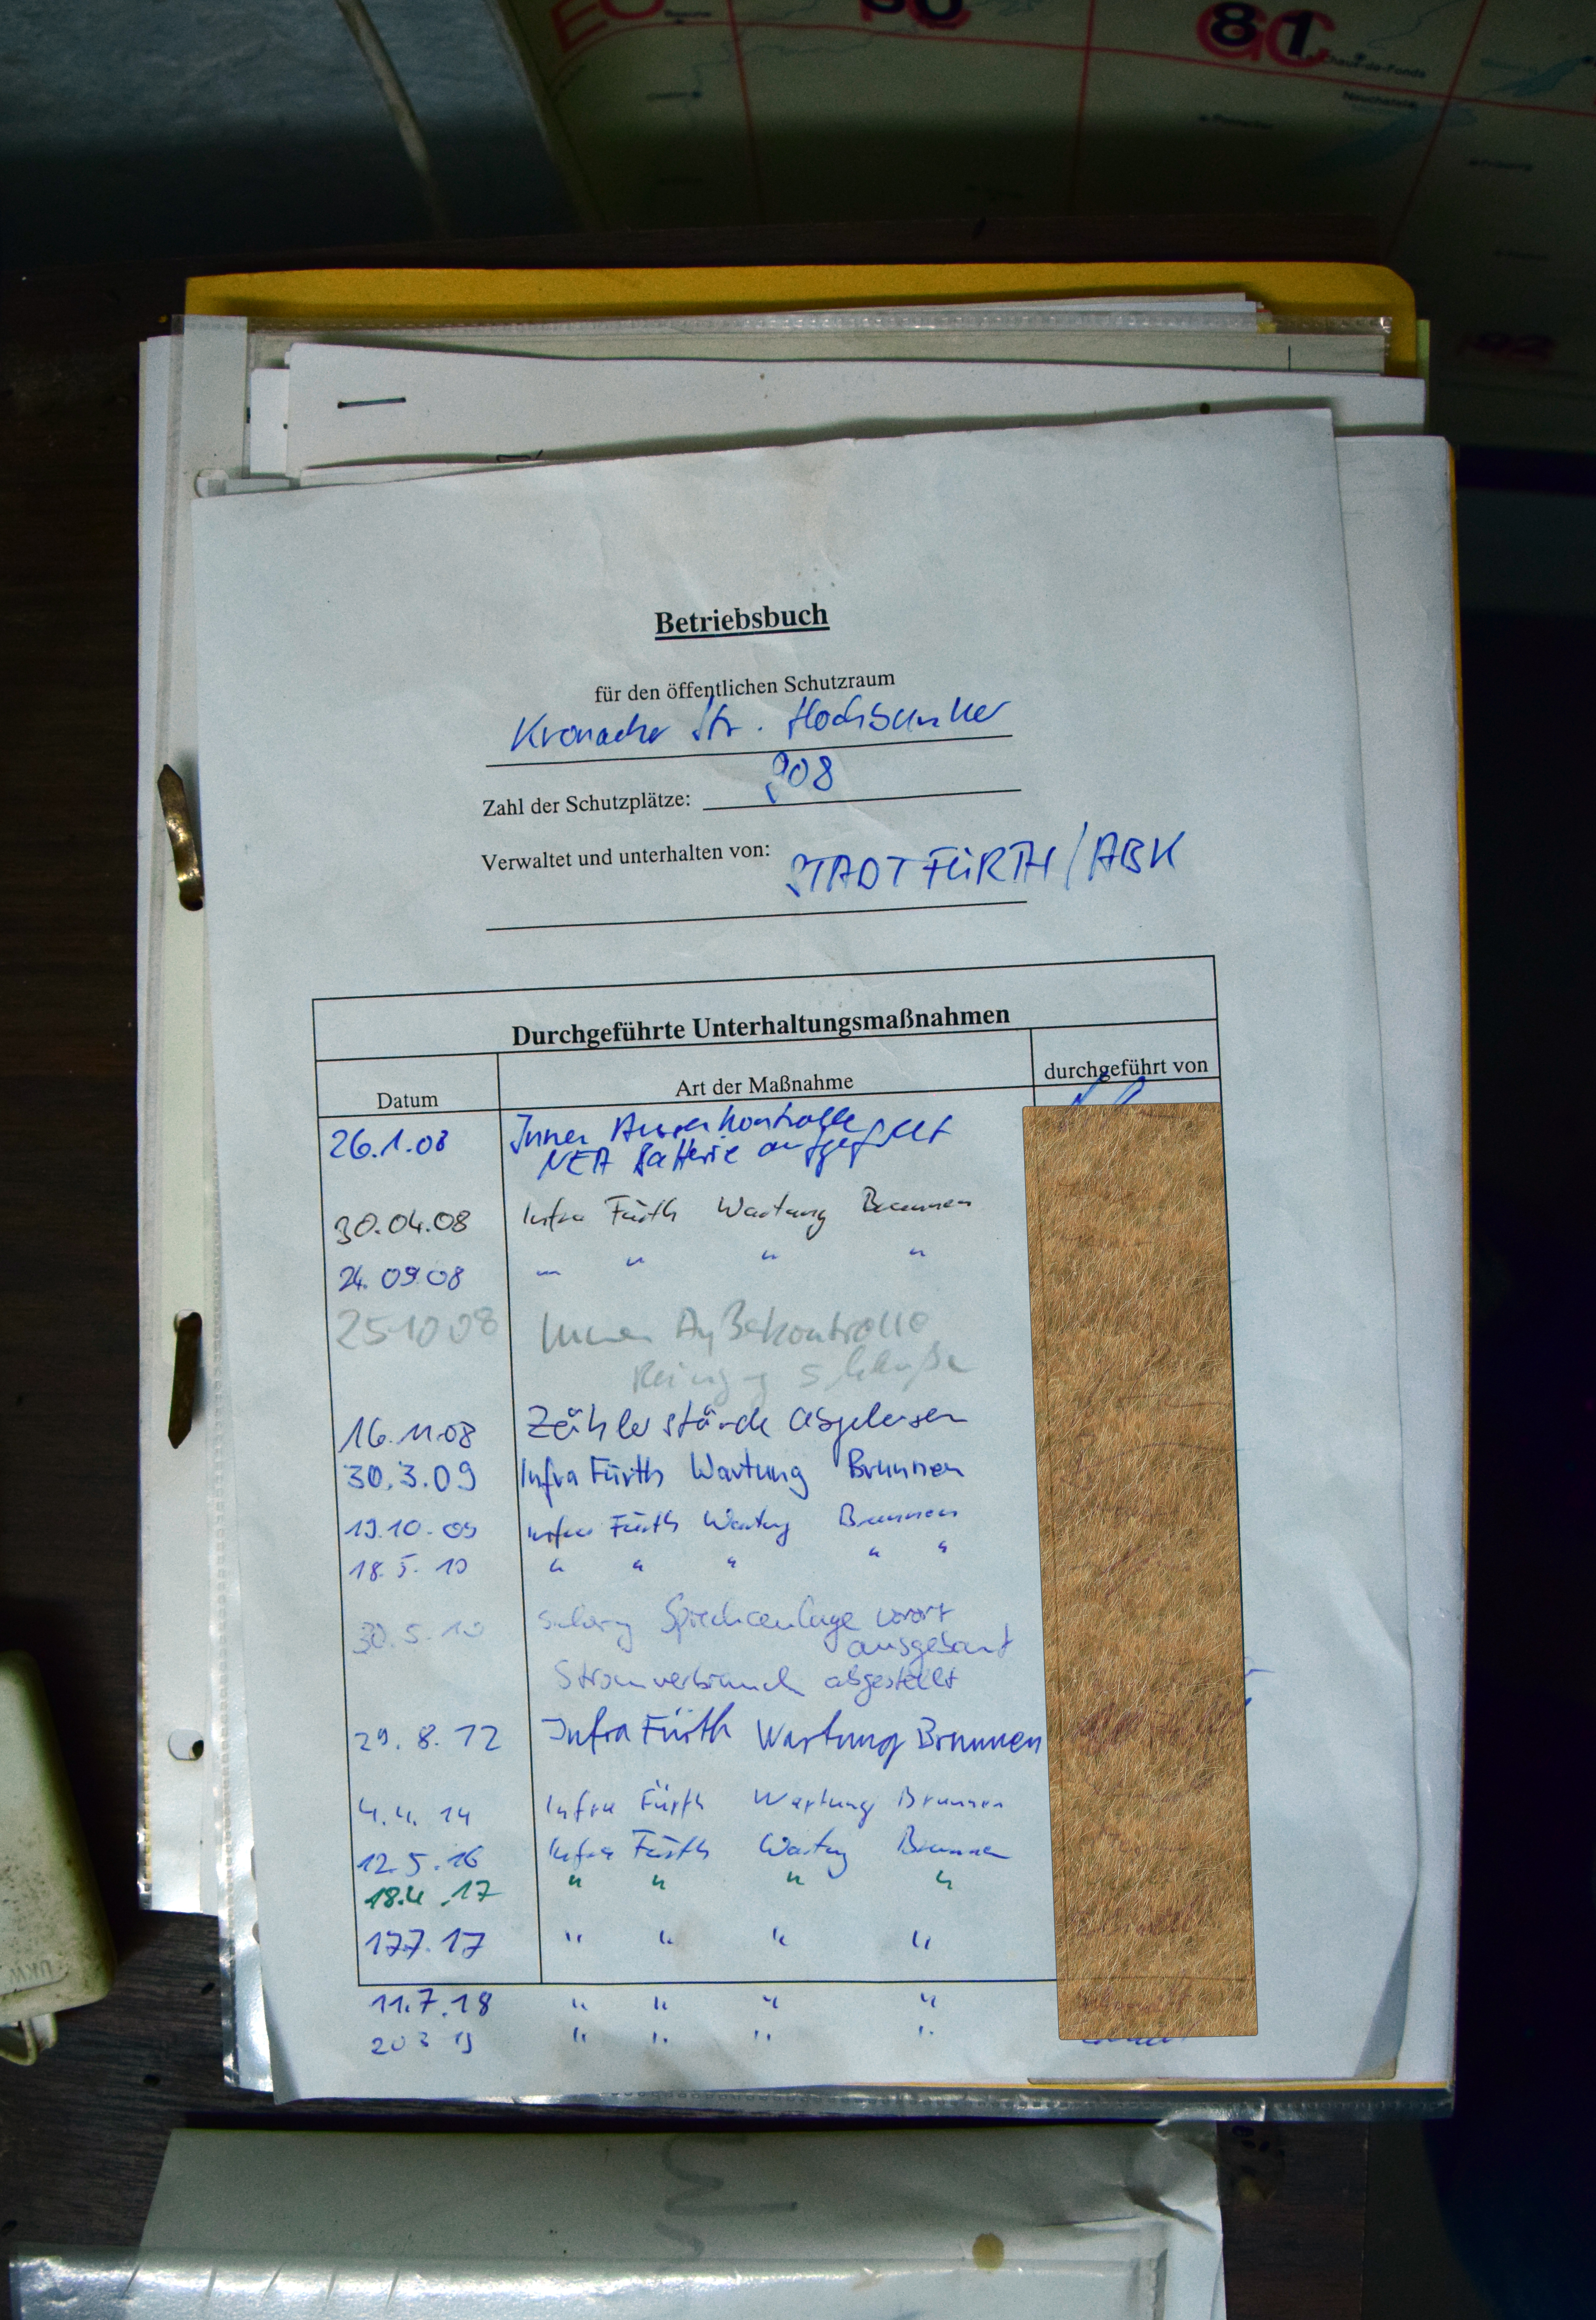 81
GC
Chaux-de-Fonds
Neuchâtel
Betriebsbuch
für den öffentlichen Schutzraum
Kronacher Str. Hochbunker
Zahl der Schutzplätze: 908
Verwaltet und unterhalten von: STADT FÜRTH / ABK
Durchgeführte Unterhaltungsmaßnahmen
Datum Art der Maßnahme durchgeführt von
26.1.08 Innen Aussenkontrolle
NEA Batterie aufgefüllt
30.04.08 Infra Fürth Wartung Brunnen
24.09.08 " " " "
25 10 08 Innen Außekontrolle
16.11.08 Zählerstände abgelesen
30.3.09 Infra Fürth Wartung Brunnen
19.10.09 Infra Fürth Wartung Brunnen
18.5.10 " " " " "
30.5.10 Sprechanlage vorort
ausgebaut
Stromverbrauch abgestellt
29.8.12 Infra Fürth Wartung Brunnen
4.4.14 Infra Fürth Wartung Brunnen
12.5.16 Infra Fürth Wartung Brunnen
18.4.17 " " " "
17.7.17 " " " "
11.7.18 " " " "
20 3 19 " " " "